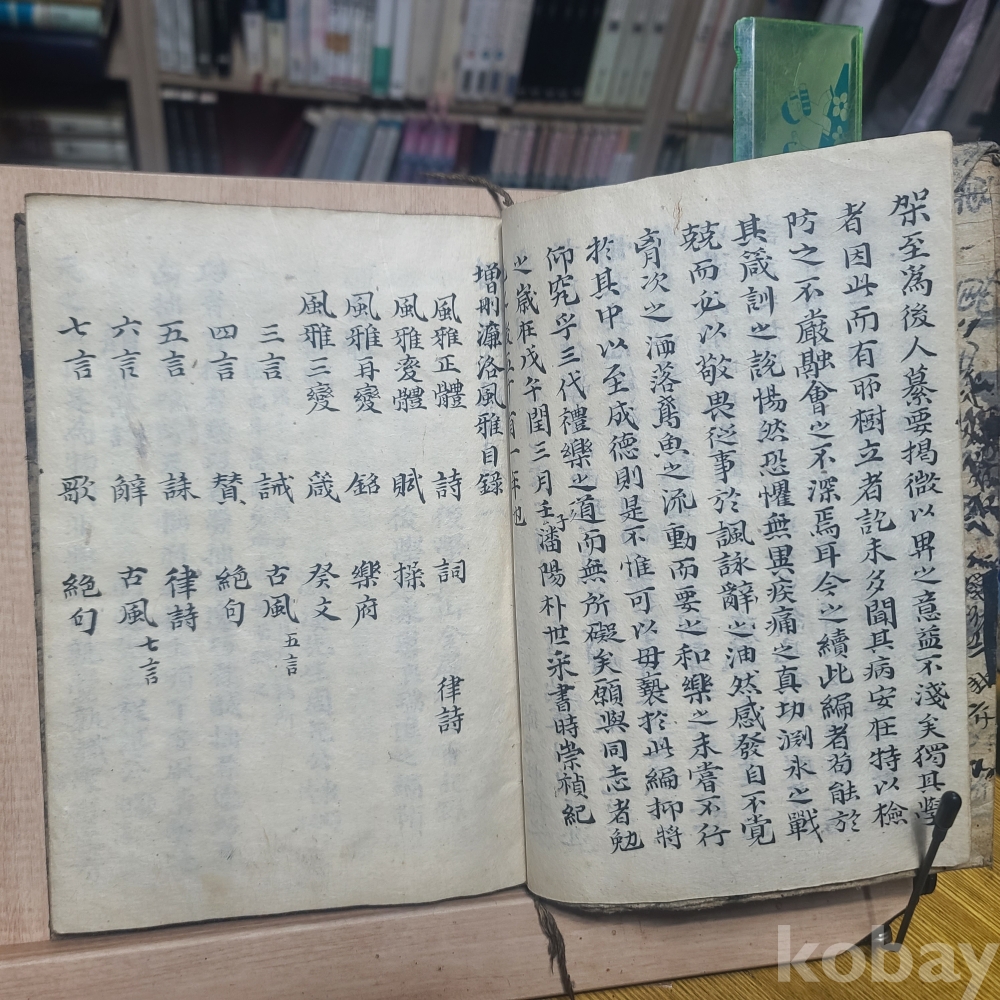 架至爲後人纂要揭微以畀之意益不淺矣獨其學
者因此而有所樹立者訖未多聞其病安在特以檢
防之不嚴融會之不深焉耳今之續此編者苟能於
其箴訓之說惕然恐懼無異疾痛之真切淵氷之戰
兢而必以敬畏從事於諷詠辭之油然感發自不覺
胷次之洒落鳶魚之流動而要之和樂之未嘗不行
於其中以至成德則是不惟可以毋褻於此編抑將
仰究乎三代禮樂之道而無所礙矣願與同志者勉
之歲在戊午閏三月壬子潘陽朴世采書時崇禎紀
元後五十有一年也
增刪濂洛風雅目錄
風雅正體 詩 詞 律詩
風雅変體 賦 操
風雅再變 銘 樂府
風雅三變 箴 癸文
三言 誡 古風 五言
四言 贊 絶句
五言 誄 律詩
六言 辭 古風 七言
七言 歌 絶句
kobay